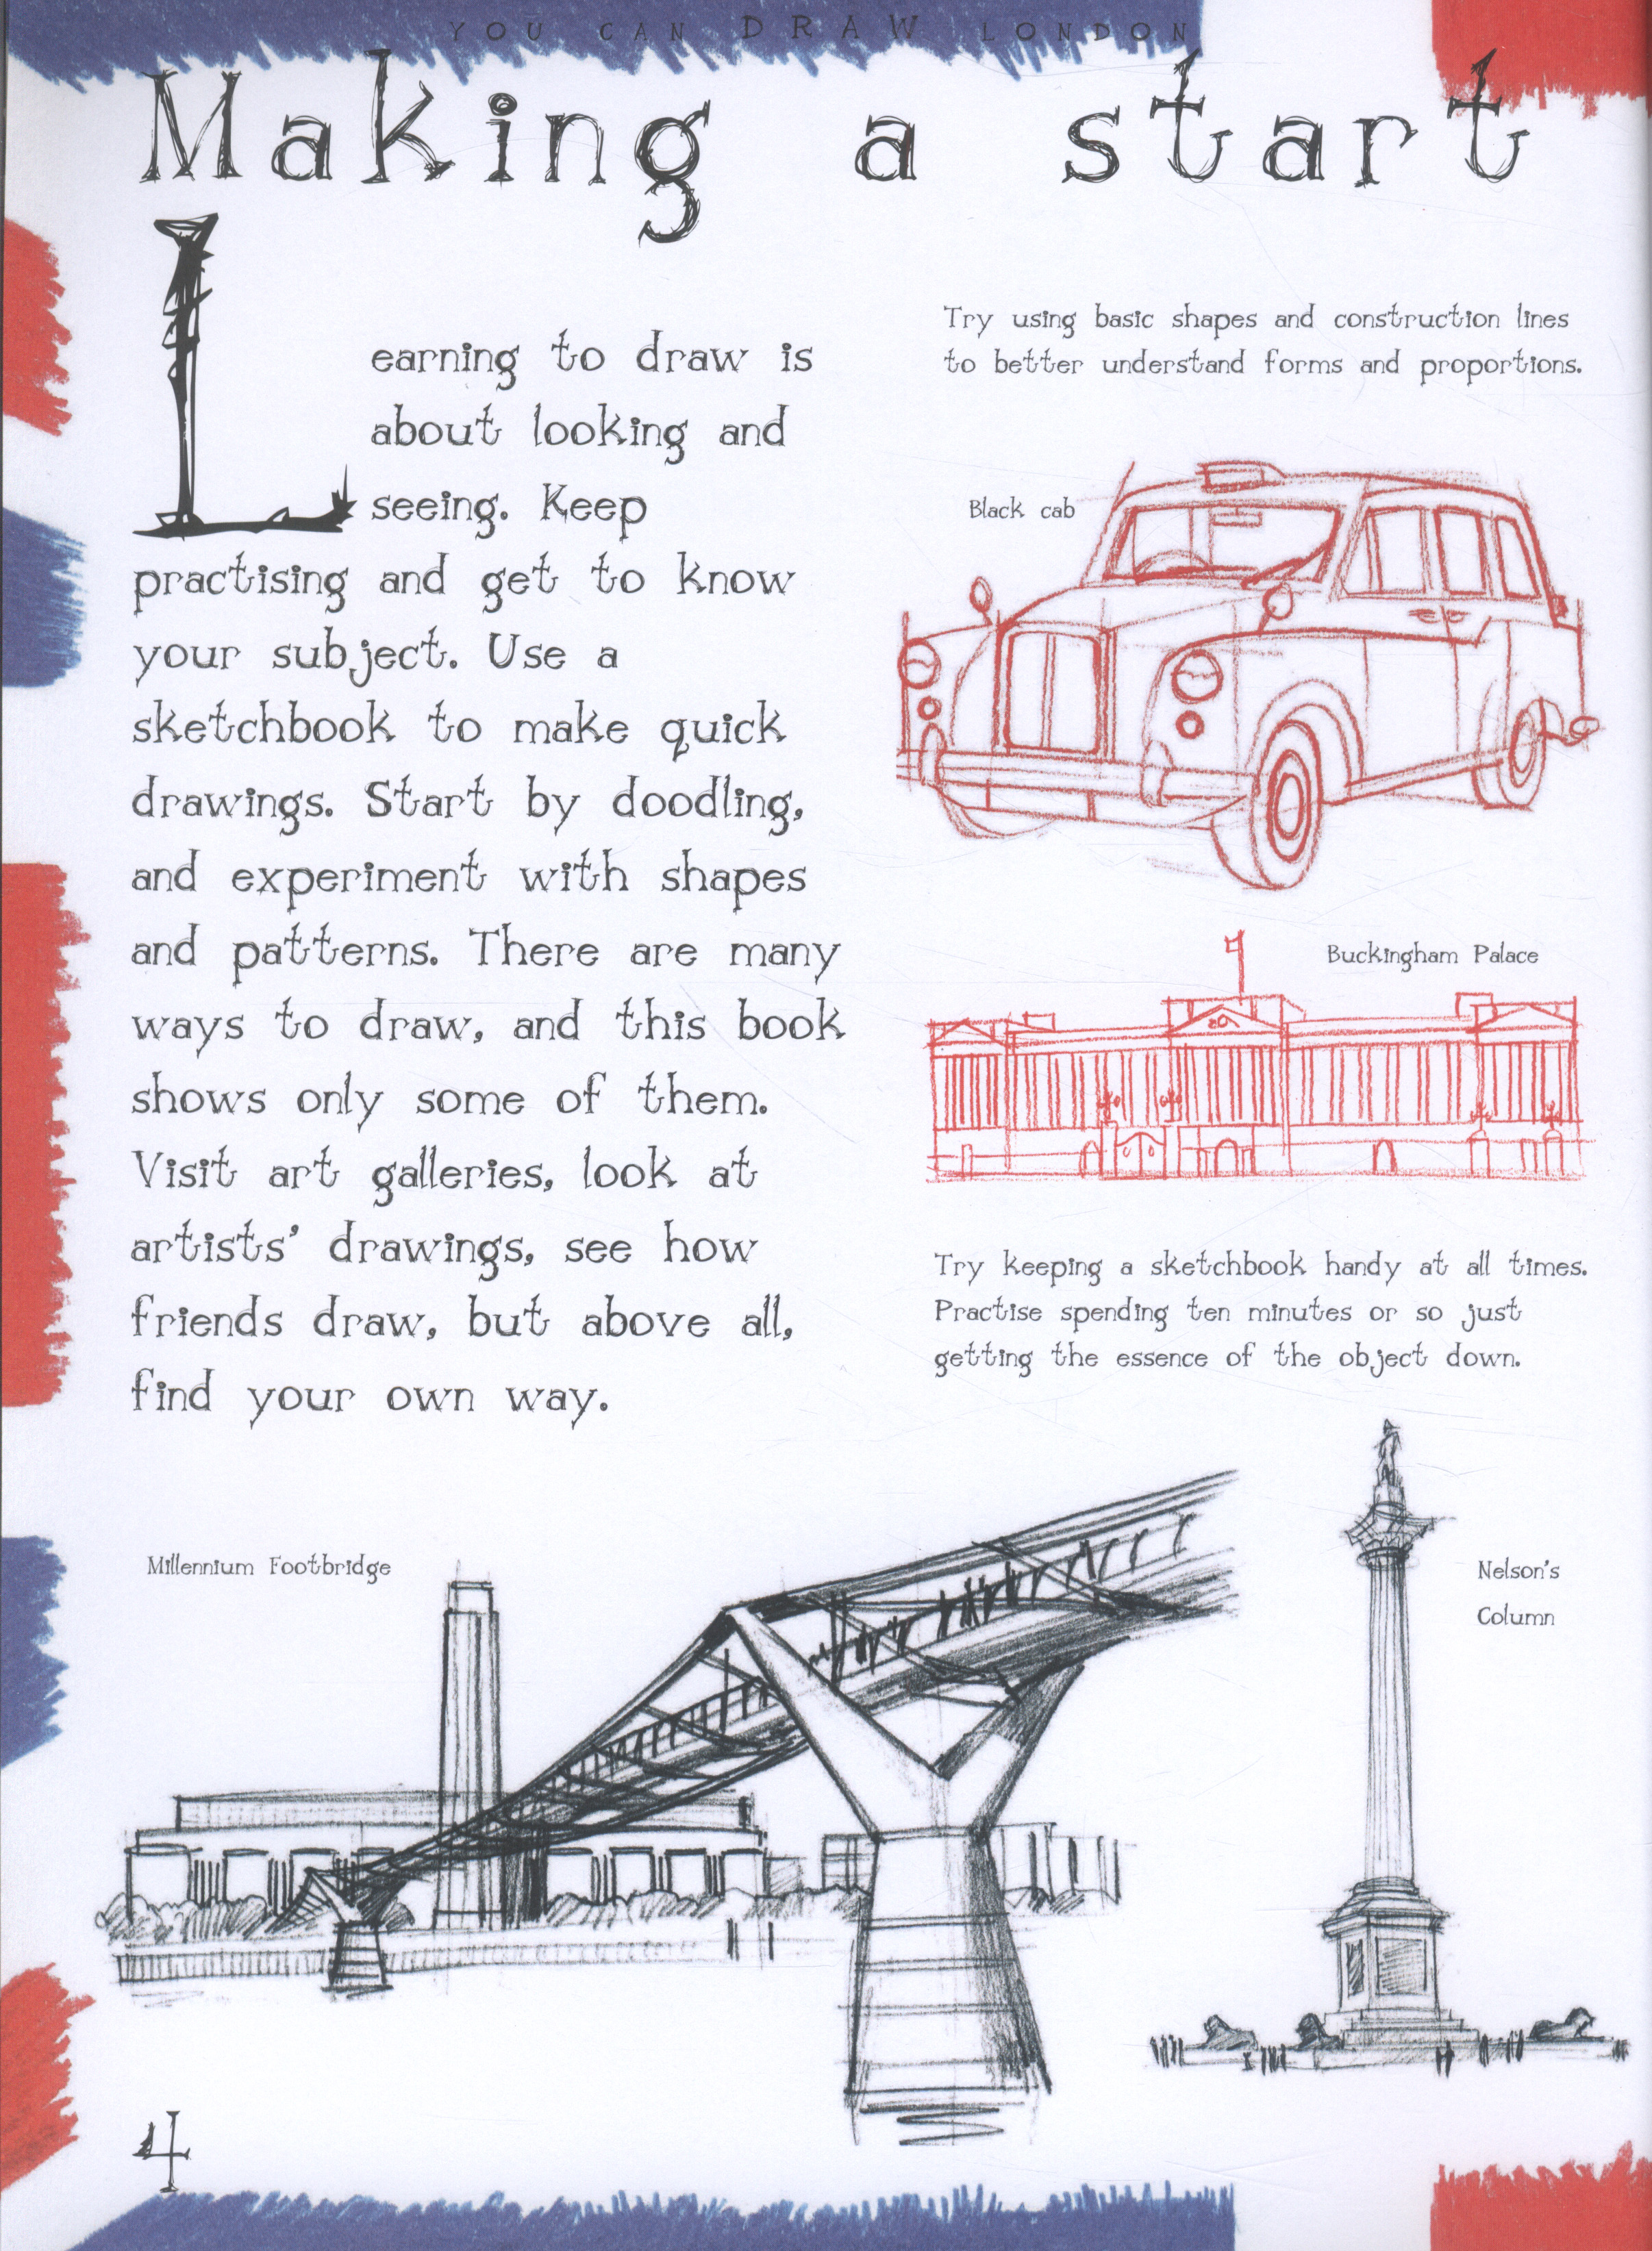 YOU CAN DRAW LONDON
Making a start
Learning to draw is
about looking and
seeing. Keep
practising and get to know
your subject. Use a
sketchbook to make quick
drawings. Start by doodling,
and experiment with shapes
and patterns. There are many
ways to draw, and this book
shows only some of them.
Visit art galleries, look at
artists' drawings, see how
friends draw, but above all,
find your own way.
Try using basic shapes and construction lines
to better understand forms and proportions.
Black cab
Buckingham Palace
Try keeping a sketchbook handy at all times.
Practise spending ten minutes or so just
getting the essence of the object down.
Millennium Footbridge
Nelson's
Column
4